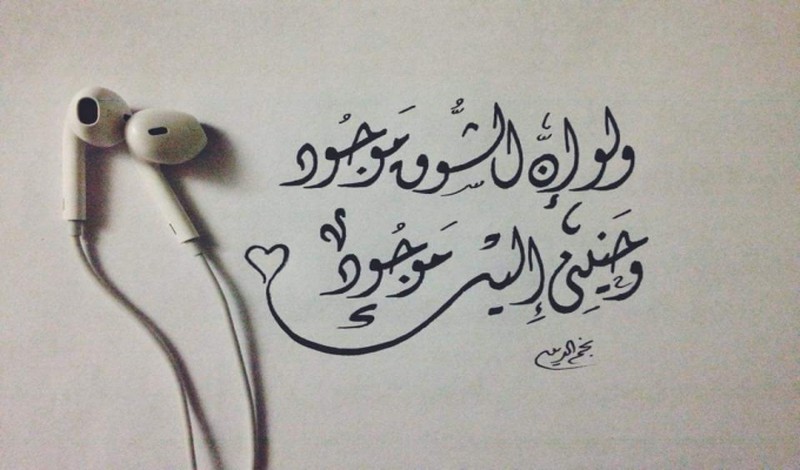 ولو إنَّ الشُّوق مَوجُود
وحَنيني إليك مَوجُود
نجم الدين